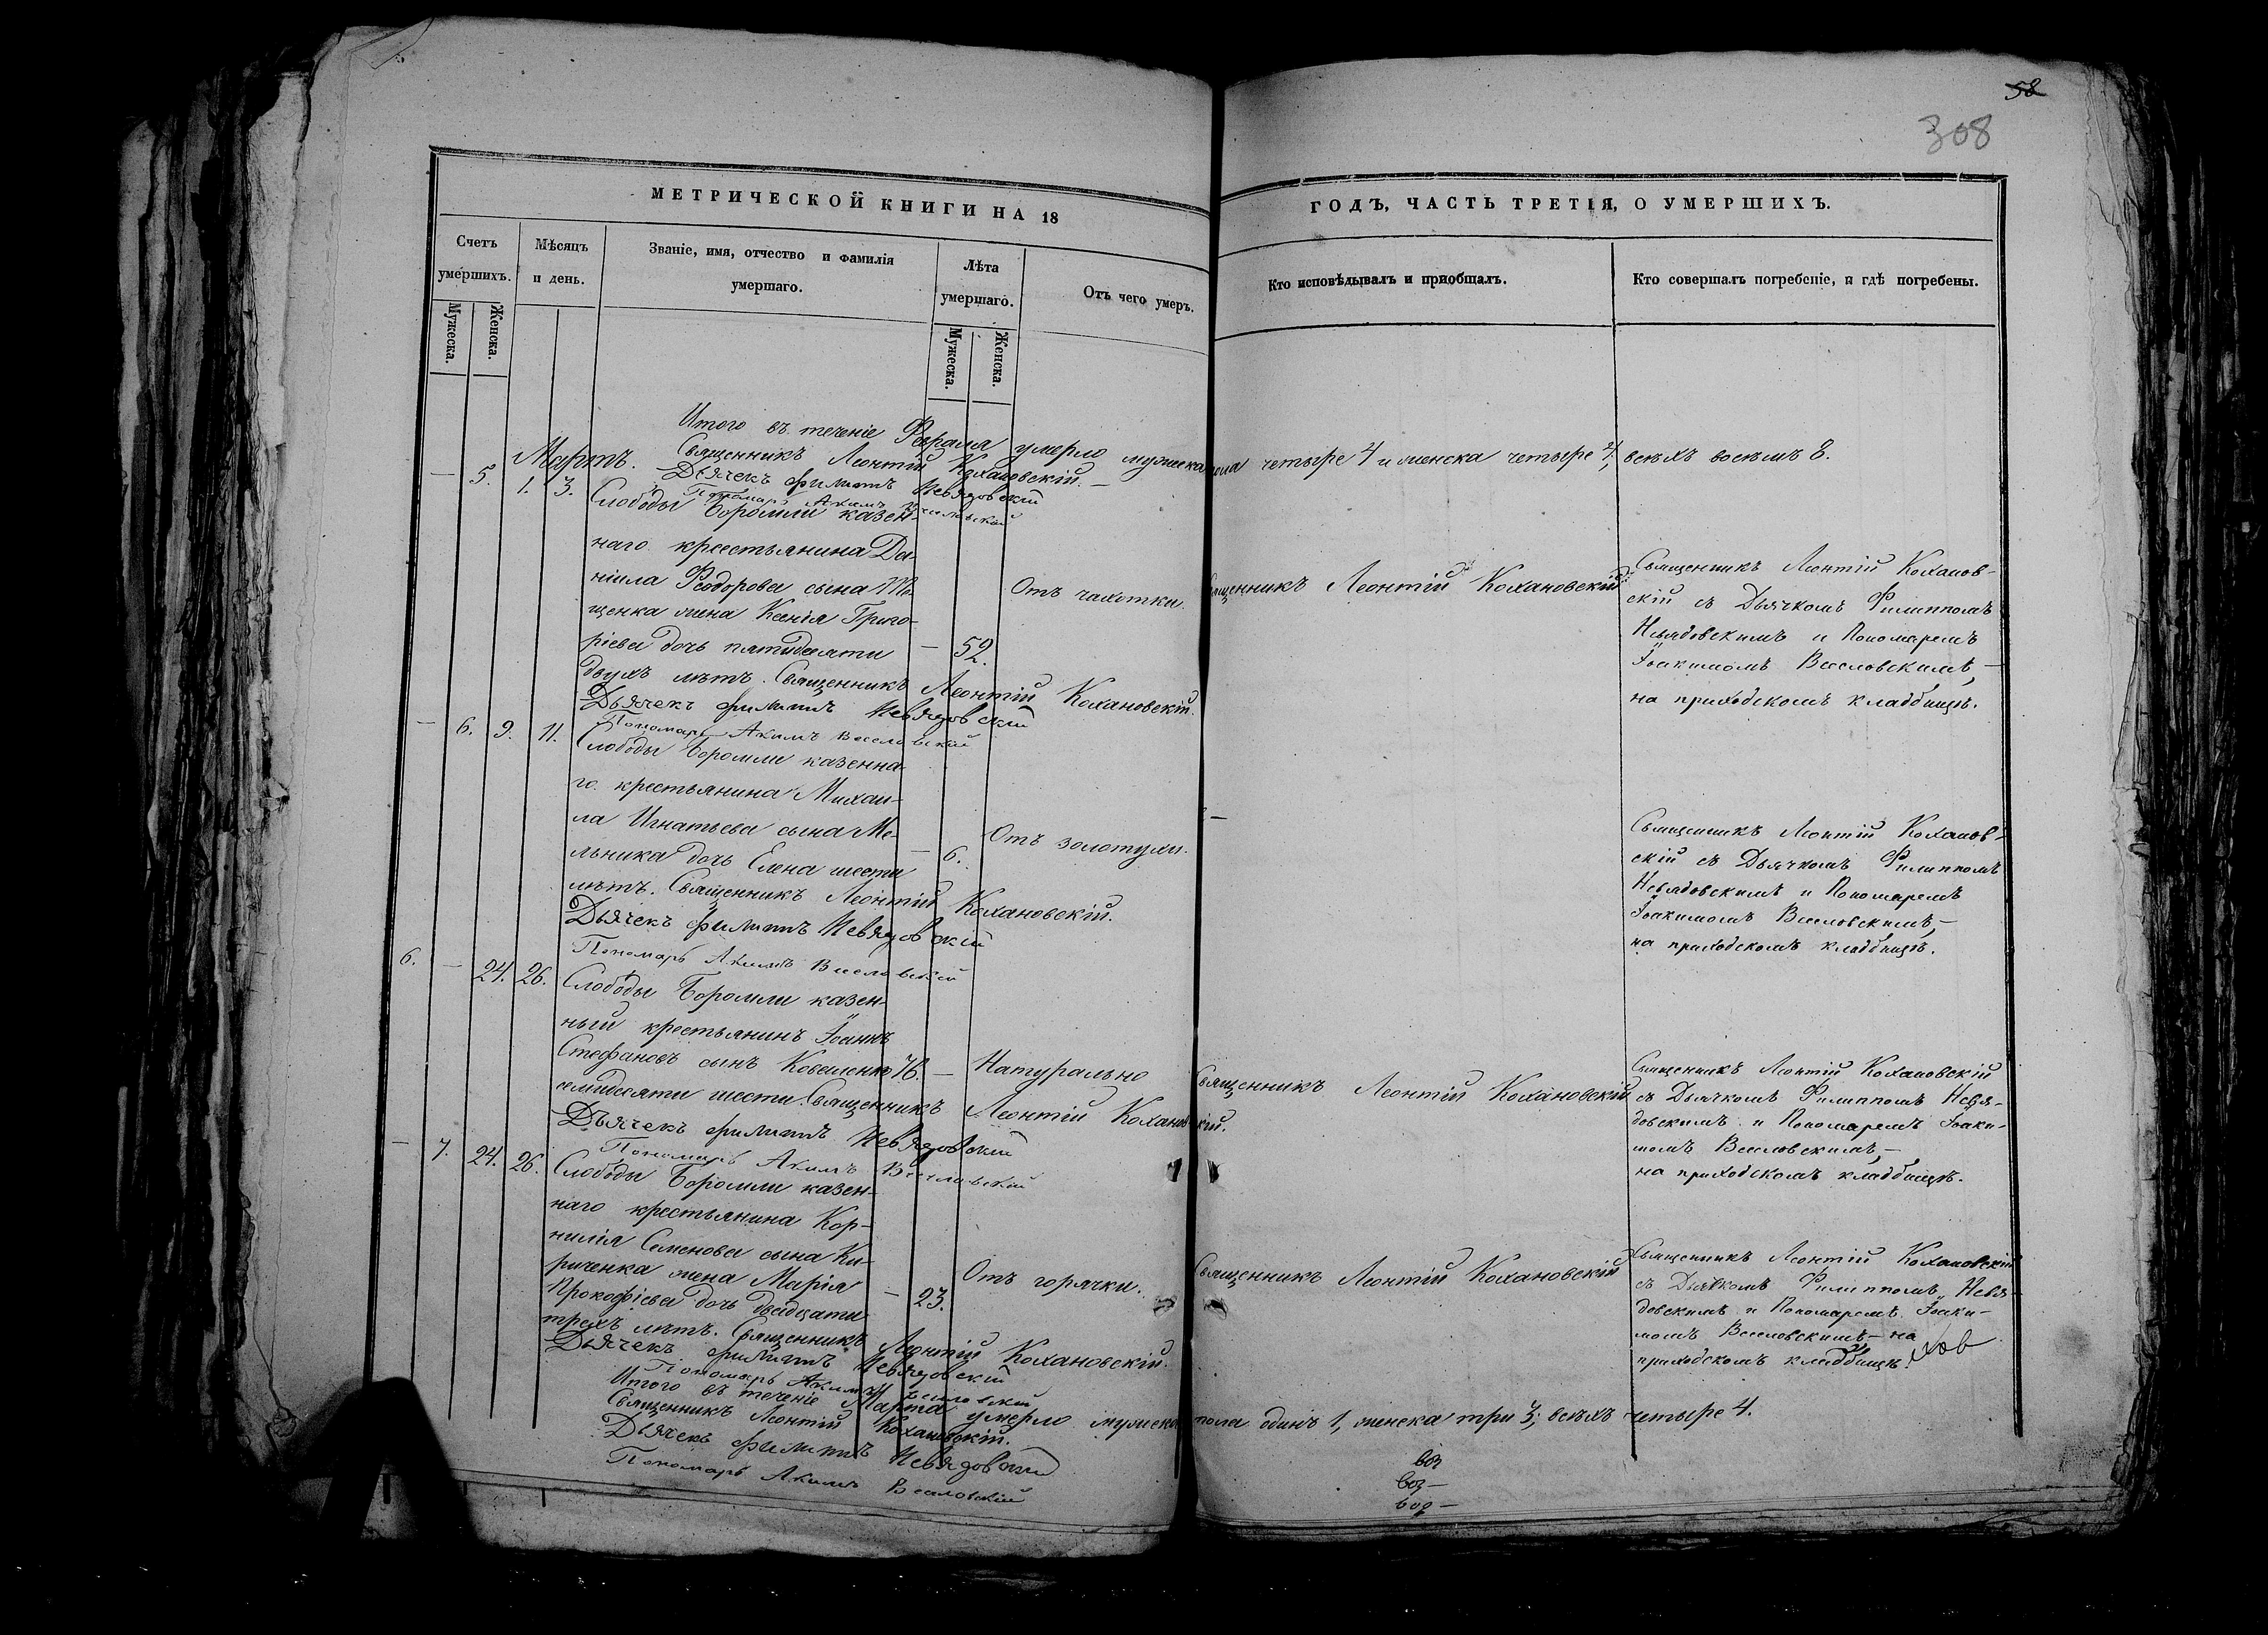 58
308
МЕТРИЧЕСКОЙ КНИГИ НА 18
ГОДЪ, ЧАСТЬ ТРЕТІЯ, О УМЕРШИХЪ.
Счетъ умершихъ.
Мужеска.
Женска.
Мѣсяцъ и день.
Званіе, имя, отчество и фамилія умершаго.
Лѣта умершаго.
Мужеска.
Женска.
Отъ чего умеръ.
Кто исповѣдывалъ и приобщалъ.
Кто совершалъ погребеніе, и гдѣ погребены.
Итого въ теченіе Февраля умерло мужеска пола четыре 4 и женска четыре 4, всѣхъ восемь 8.
Священникъ Леонтій Кохановскій.—
Дьячекъ Филиппъ Невядовскій
Пономарь Акимъ Веселовскій
Мартъ.
— 5. 1. 3.
Слободы Боромли казен-
наго крестьянина Да-
ніила Ѳеодорова сына
щенка жена Ксенія Григо-
ріева дочь пятидесяти
двухъ лѣтъ. Священникъ Леонтій Кохановскій.
— 52.
Отъ чахотки.
Священникъ Леонтій Кохановскій
Священникъ Леонтій Коханов-
скій съ Дьячкомъ Филиппомъ
Невядовскимъ и Пономаремъ
Іоакимомъ Веселовскимъ,—
на приходскомъ кладбищѣ.
Дьячекъ Филиппъ Невядовскій
Пономарь Акимъ Веселовскій
— 6. 9. 11.
Слободы Боромли казенна-
го крестьянина Михаи-
ла Игнатьева сына Ме-
льника дочь Елена шести
лѣтъ. Священникъ Леонтій Кохановскій.
— 6.
Отъ золотухи.
—
Священникъ Леонтій Коханов-
скій съ Дьячкомъ Филиппомъ
Невядовскимъ и Пономаремъ
Іоакимомъ Веселовскимъ,—
на приходскомъ кладбищѣ.
Дьячекъ Филиппъ Невядовскій
Пономарь Акимъ Веселовскій
6. — 24. 26.
Слободы Боромли казен-
ный крестьянинъ Іоаннъ
Стефановъ сынъ Коваленко
семидесяти шести. Священникъ Леонтій Кохановскій.
76. —
Натурально
Священникъ Леонтій Кохановскій
Священникъ Леонтій Кохановскій
съ Дьячкомъ Филиппомъ Невя-
довскимъ и Пономаремъ Іоаки-
момъ Веселовскимъ,—
на приходскомъ кладбищѣ.
Дьячекъ Филиппъ Невядовскій
Пономарь Акимъ Веселовскій
— 7. 24. 26.
Слободы Боромли казен-
наго крестьянина Кор-
нилія Семенова сына Ки-
риченка жена Марія
Прокофіева дочь двадцати
трехъ лѣтъ. Священникъ Леонтій Кохановскій.
— 23.
Отъ горячки.
Священникъ Леонтій Кохановскій
Священникъ Леонтій Кохановскій
съ Дьячкомъ Филиппомъ Невя-
довскимъ и Пономаремъ Іоаки-
момъ Веселовскимъ— на
приходскомъ кладбищѣ.
Дьячекъ Филиппъ Невядовскій
Пономарь Акимъ Веселовскій
Итого въ теченіе Марта умерло мужеска пола одинъ 1, женска три 3, всѣхъ четыре 4.
Священникъ Леонтій Кохановскій.
Дьячекъ Филиппъ Невядовскій
Пономарь Акимъ Веселовскій